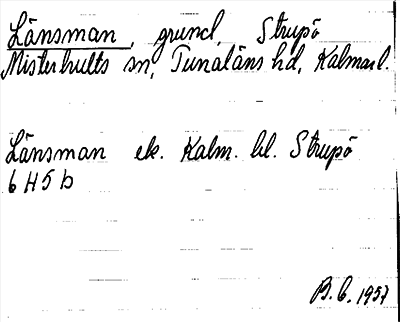 Länsman, grund, Strupö
Misterhults sn, Tunaläns hd, Kalmar l.
Länsman ek. Kalm. bl. Strupö
6 H 5 b
B. C. 1957